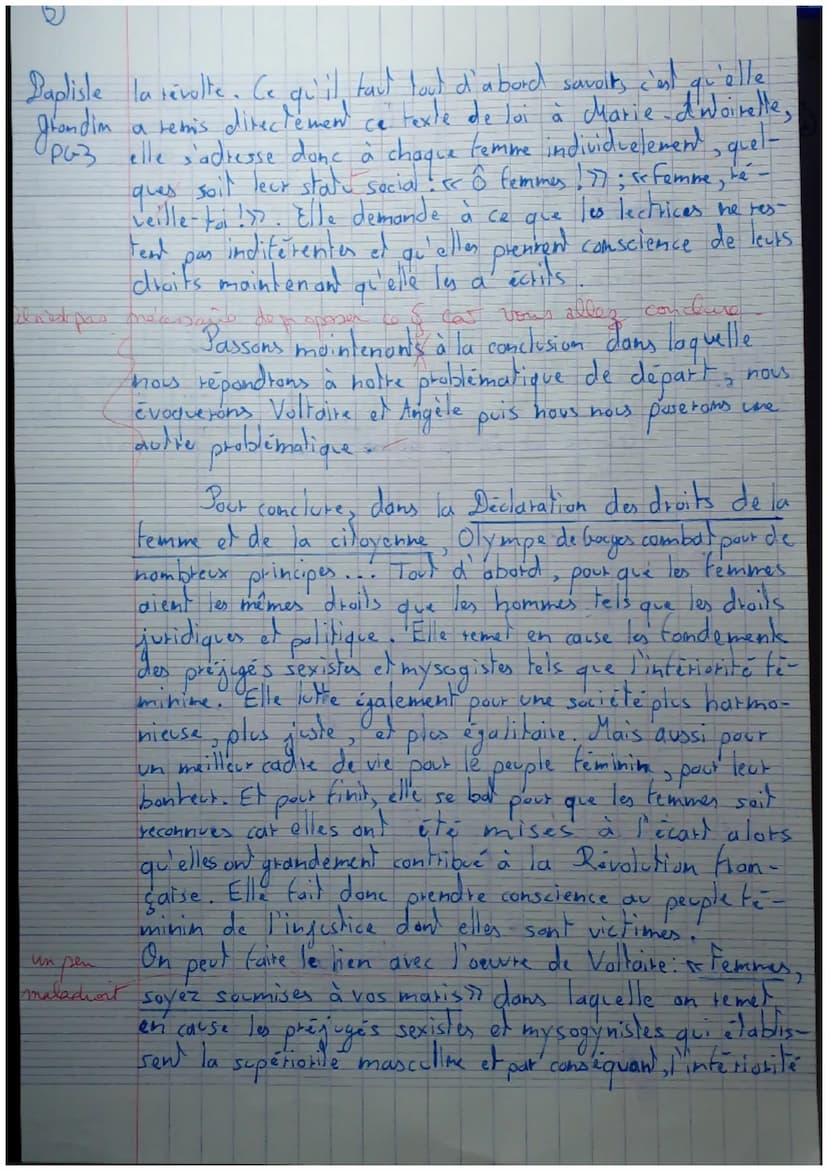 5)
Baptiste la révolte. Ce qu'il faut tout d'abord savoir, c'est qu'elle
grandim a remis directement ce texte de loi à Marie-Antoinette,
PG3 elle s'adresse donc à chaque femme individuelement, quel-
ques soit leur statut social : « Ô femmes ! » ; « Femme, ré-
veille-toi ! ». Elle demande à ce que les lectrices ne res-
tent pas indiférentes et qu'elles prennent conscience de leurs
droits maintenant qu'elle les a écrits.
il n'est pas nécessaire de proposer ce § car vous allez conclure.
Passons maintenant à la conclusion dans laquelle
nous répondrons à notre problématique de départ, nous
évoquerons Voltaire et Angèle puis nous nous poserons une
autre problématique.
Pour conclure, dans la Déclaration des droits de la
femme et de la citoyenne, Olympe de Gouges combat pour de
nombreux principes... Tout d'abord, pour que les femmes
aient les mêmes droits que les hommes tels que les droits
juridiques et politique. Elle remet en cause les fondements
des préjugés sexistes et mysogistes tels que l'infériorité fé-
minine. Elle lutte également pour une société plus harmo-
nieuse, plus juste, et plus égalitaire. Mais aussi pour
un meilleur cadre de vie pour le peuple féminin, pour leur
bonheur. Et pour finir, elle se bat pour que les femmes soit
reconnues car elles ont été mises à l'écart alors
qu'elles ont grandement contribué à la Révolution fran-
çaise. Elle fait donc prendre conscience au peuple fé-
minin de l'injustice dont elles sont victimes.
On peut faire le lien avec l'oeuvre de Voltaire : « Femmes,
un peu maladroit soyez soumises à vos maris » dans laquelle on remet
en cause les préjugés sexistes et mysogynistes qui établis-
sent la supériorité masculine et par conséquant, l'infériorité